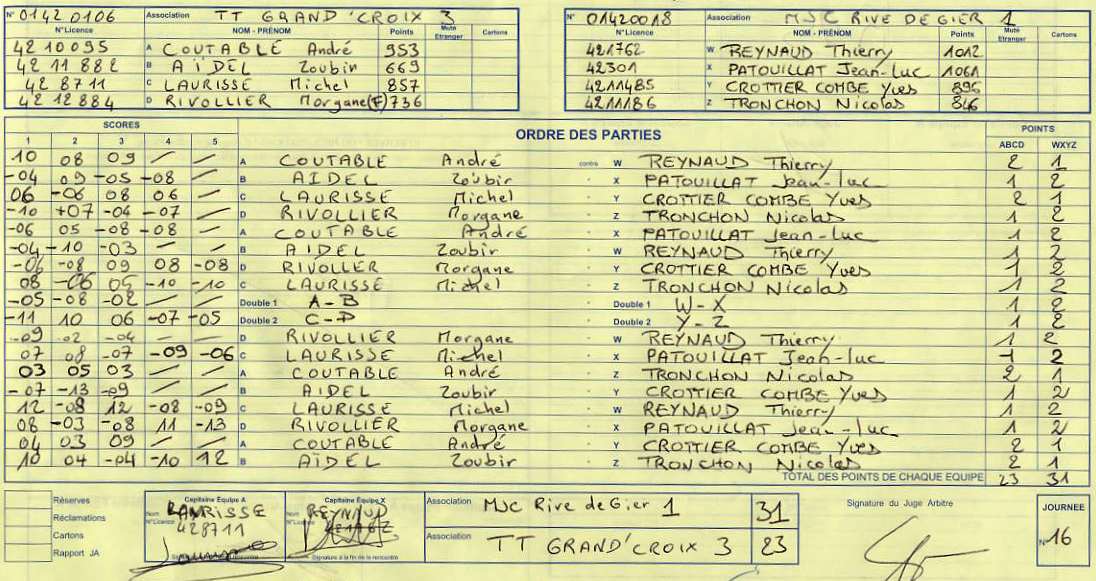 N° 01420106 Association TT GRAND'CROIX 3
N°Licence NOM - PRÉNOM Points Muté Etranger Cartons
4210095 A COUTABLE André 953
4211882 B AÏDEL Zoubir 669
428711 C LAURISSE Michel 857
4212884 D RIVOLLIER Morgane(F) 736
N° 01420018 Association MJC RIVE DE GIER 1
N°Licence NOM - PRÉNOM Points Muté Etranger Cartons
421762 W REYNAUD Thierry 1012
42301 X PATOUILLAT Jean-Luc 1061
4211485 Y CROTTIER COMBE Yves 896
4211186 Z TRONCHON Nicolas 846
SCORES ORDRE DES PARTIES POINTS
1 2 3 4 5 ABCD WXYZ
10 08 09 / / A COUTABLE André contre W REYNAUD Thierry 2 1
-04 09 -05 -08 / B AIDEL Zoubir X PATOUILLAT Jean-luc 1 2
06 -06 08 06 / C LAURISSE Michel Y CROTTIER COMBE Yves 2 1
-10 +07 -04 -07 / D RIVOLLIER Morgane Z TRONCHON Nicolas 1 2
-06 05 -08 -08 / A COUTABLE André X PATOUILLAT Jean-luc 1 2
-04 -10 -03 / / B AIDEL Zoubir W REYNAUD Thierry 1 2
-06 -08 09 08 -08 D RIVOLLER Morgane Y CROTTIER COMBE Yves 1 2
08 -06 05 -10 -10 C LAURISSE Michel Z TRONCHON Nicolas 1 2
-05 -08 -02 / / Double 1 A-B Double 1 W-X 1 2
-11 10 06 -07 -05 Double 2 C-D Double 2 Y-Z 1 2
-09 -02 -04 / / D RIVOLLIER Morgane W REYNAUD Thierry 1 2
07 08 -07 -09 -06 C LAURISSE Michel X PATOUILLAT Jean-luc 1 2
03 05 03 / / A COUTABLE André Z TRONCHON Nicolas 2 1
-07 -13 -09 / / B AIDEL Zoubir Y CROTTIER COMBE Yves 1 2
12 -08 12 -08 -09 C LAURISSE Michel W REYNAUD Thierry 1 2
08 -03 -08 11 -13 D RIVOLLIER Morgane X PATOUILLAT Jean-luc 1 2
04 03 09 / / A COUTABLE André Y CROTTIER COMBE Yves 2 1
10 04 -04 -10 12 B AÏDEL Zoubir Z TRONCHON Nicolas 2 1
TOTAL DES POINTS DE CHAQUE EQUIPE 23 31
Réserves
Réclamations
Cartons
Rapport JA
Capitaine Equipe A
Nom LAURISSE
N°Licence 428711
Capitaine Equipe X
Nom REYNAUD
N°Licence
Signature à la fin de la rencontre
Association MJC Rive de Gier 1 31
Association TT GRAND'CROIX 3 23
Signature du Juge Arbitre
JOURNEE
N°16